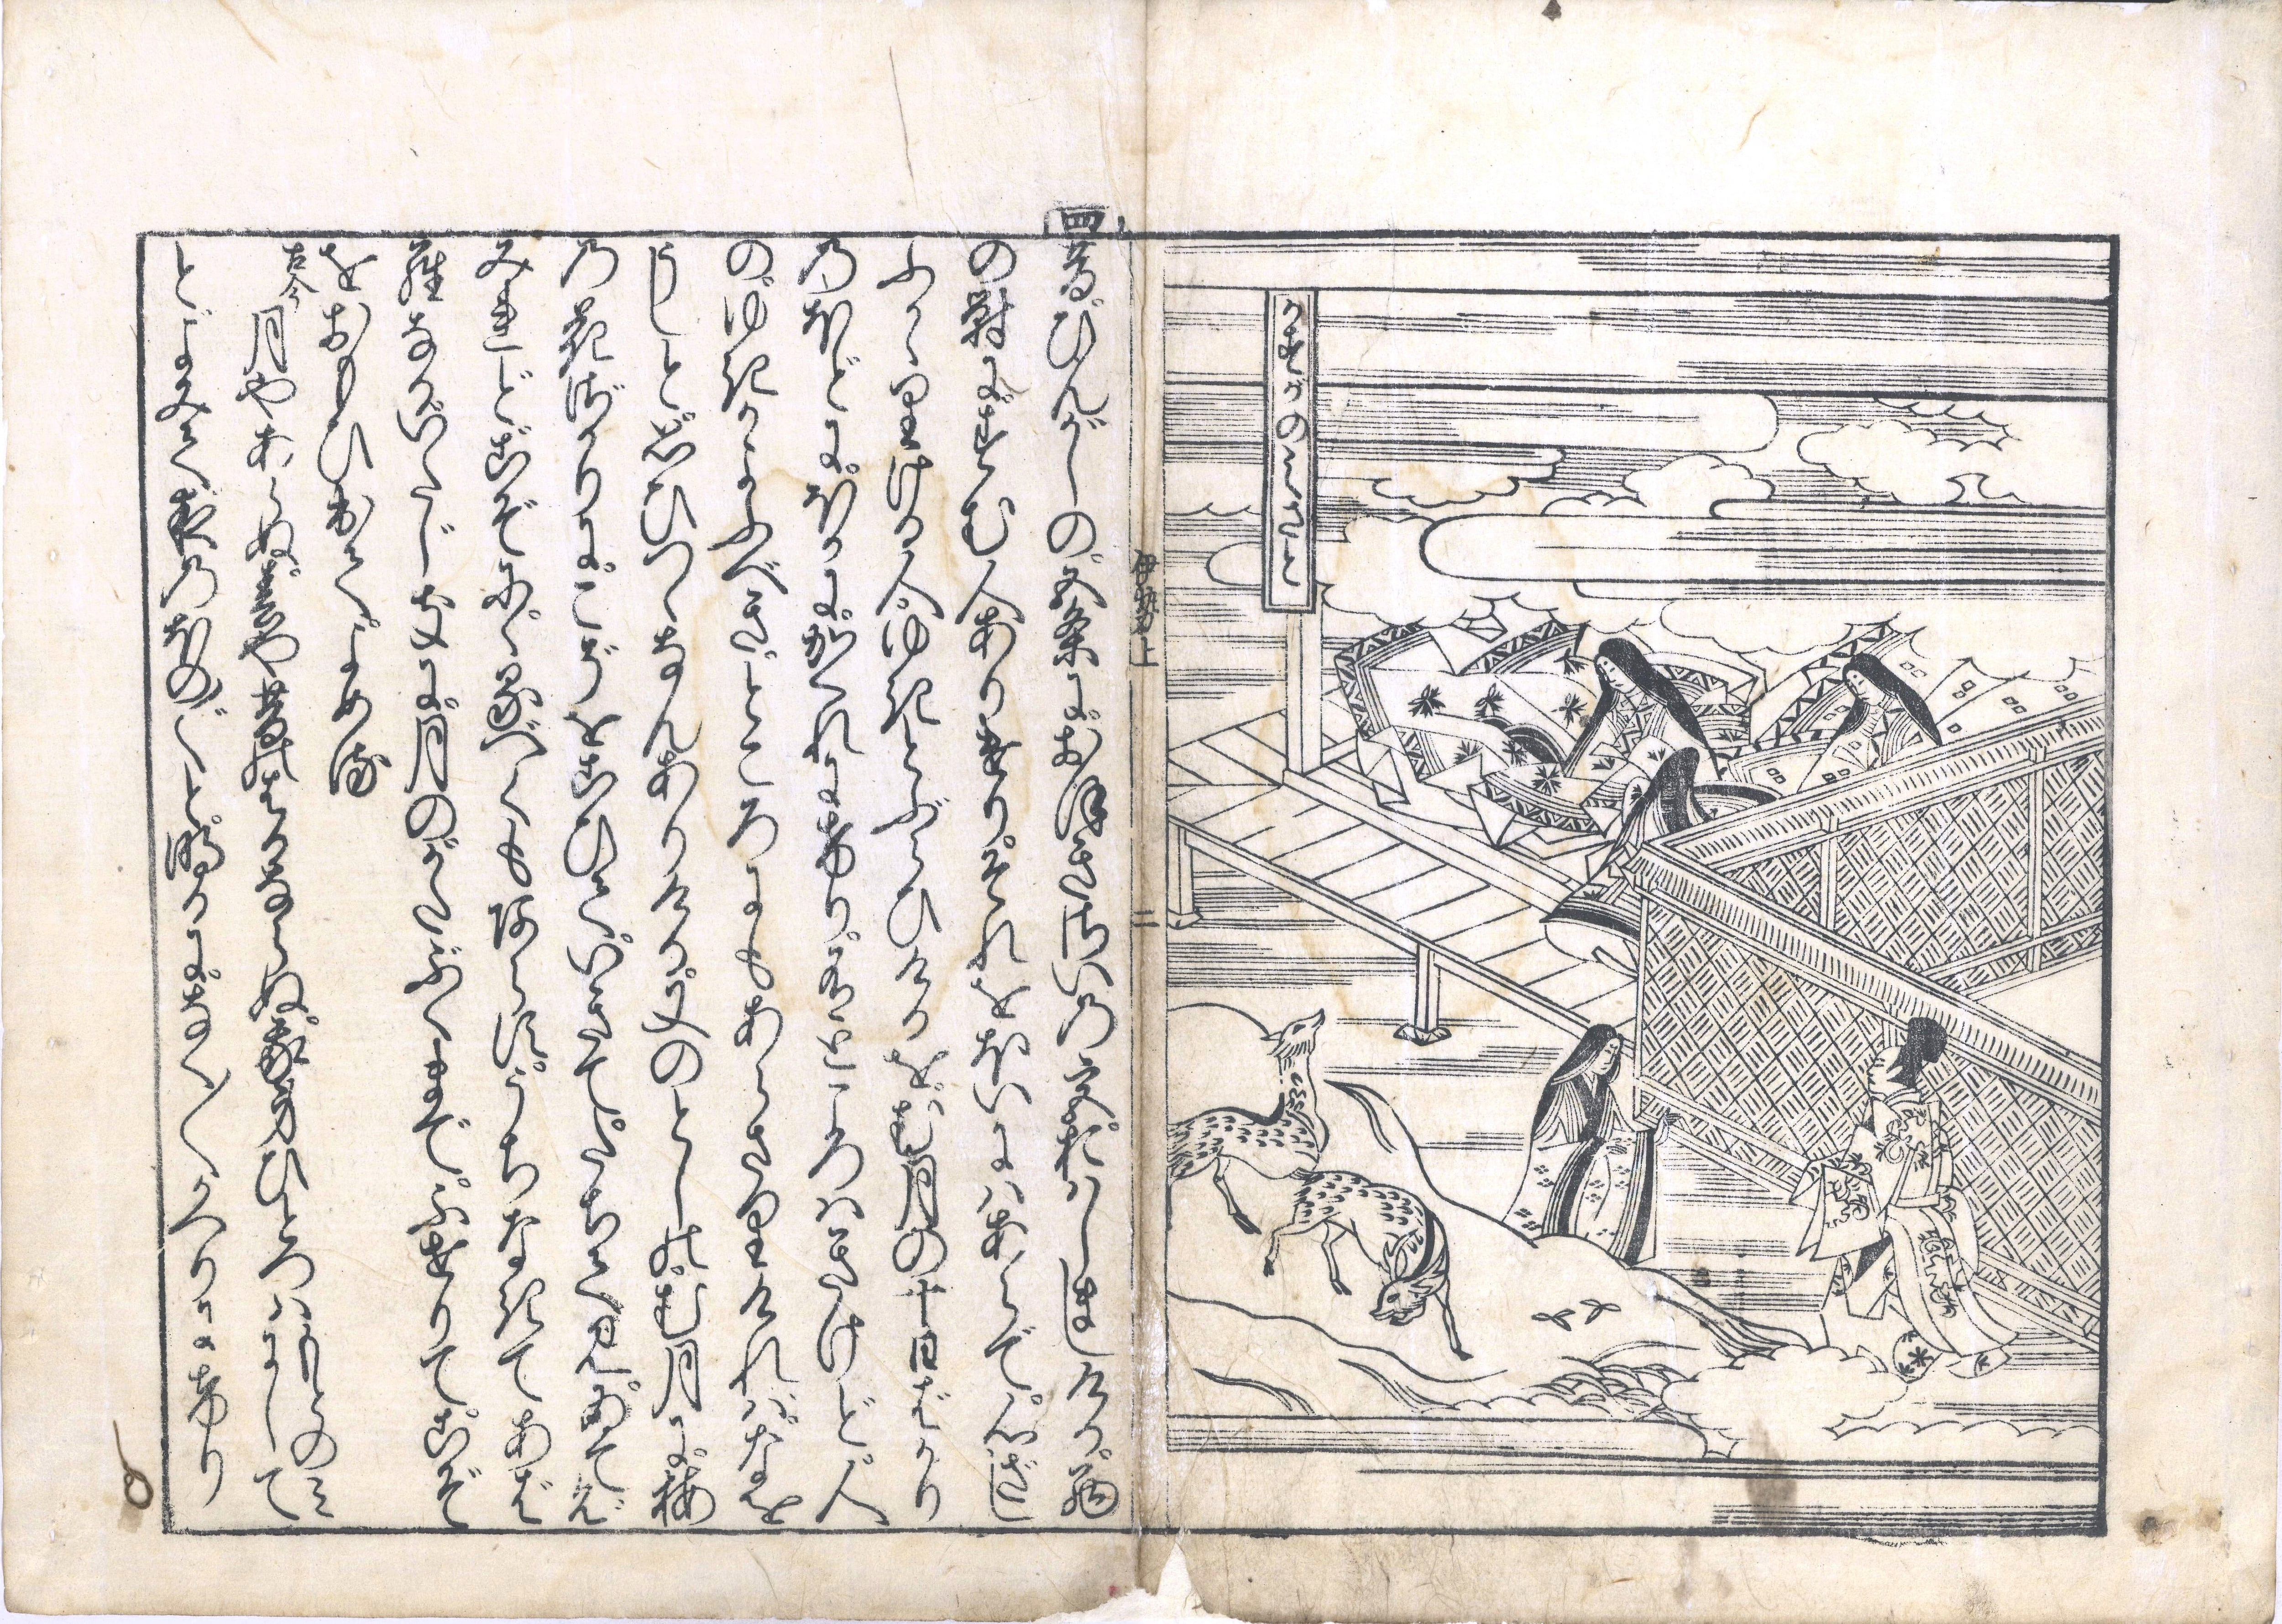 かすがのゝ
伊勢上
二
四
昔。ひんがしの。五条に。おほきさいの宮。おはしましける。西
の対に。すむ人ありけり。それをほいにはあらで。心ざし
ふかゝりける人。ゆきとぶらひけるを。む月の十日ばかり
のほどに。ほかに。かくれにけり。有どころはきけど。人
の。ゆきかよふべきどころにもあらざりければ。なを
うしと思ひつゝなんありける。又のとしの。む月に。梅
の花ざかりに。こぞをこひて。いきて。たちて見。ゐて見
みれど。こぞに。にるべくもあらず。うちなきて。あば
らなるいたじきに。月のかたぶくまで。ふせりて。こぞ
をおもひ出て。よめる
古今
月やあらぬ。春や昔のはるならぬ。我身ひとつはもとのミにして
とよみて夜のほの〴〵と。明るに。なく〳〵かへりにけり